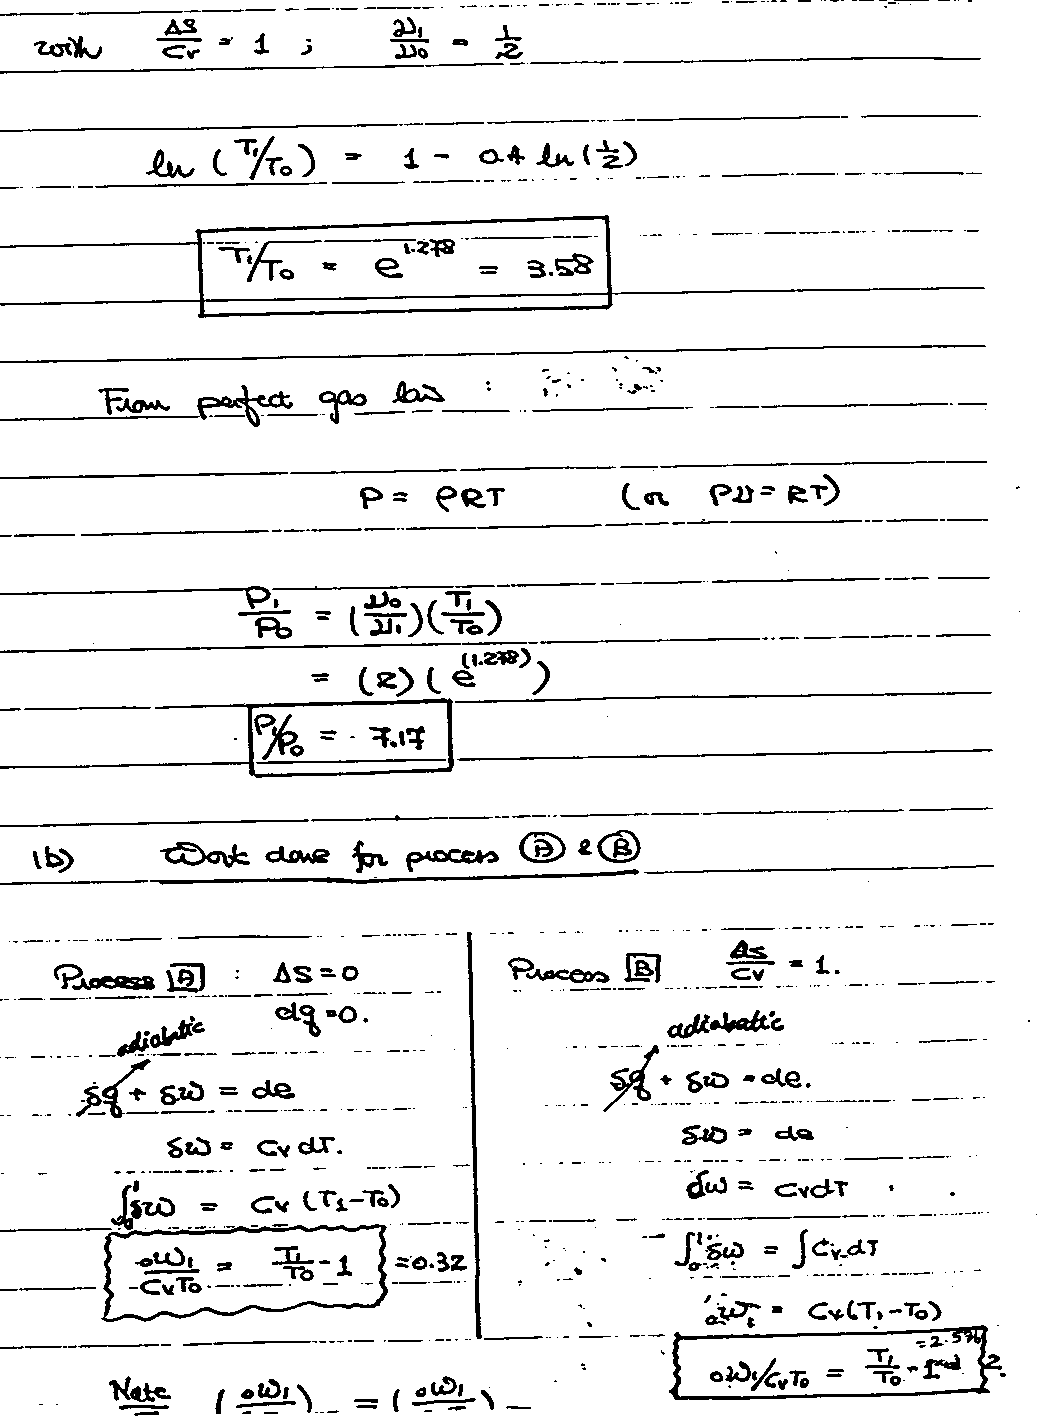 with ΔS/Cv = 1 ; υ₁/υ₀ = 1/2
ln (T₁/T₀) = 1 - 0.4 ln (1/2)
T₁/T₀ = e^1.278 = 3.58
From perfect gas law :
P = ρRT (or Pυ = RT)
P₁/P₀ = (υ₀/υ₁)(T₁/T₀)
= (2) (e^(1.278))
P₁/P₀ = 7.17
1b) Work done for process Ⓐ & Ⓑ
Process [A] : ΔS = 0
dq = 0.
adiabatic
δq + δw = de
δw = Cv dT.
∫₀¹ δw = Cv (T₁ - T₀)
₀w₁/CvT₀ = T₁/T₀ - 1 = 0.32
Process [B] Δs/Cv = 1.
adiabatic
δq + δw = de.
δw = de
δw = CvdT
∫₀¹ δw = ∫ Cv dT
₀w₁ = Cv(T₁ - T₀)
₀w₁/CvT₀ = T₁/T₀ - 1 = 2.576
Note (₀w₁ ) = (₀w₁ )